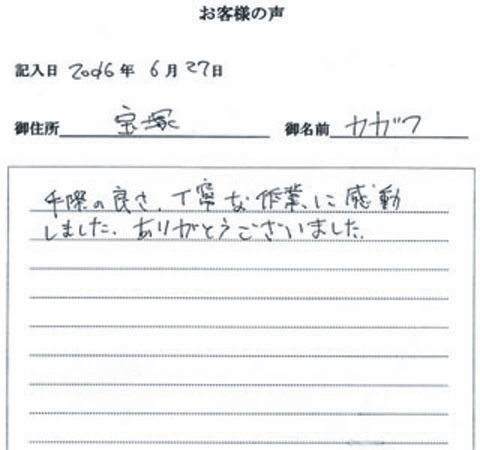 お客様の声
記入日 2006年 6月27日
御住所 宝塚 御名前 カガワ
手際の良さ、丁寧な作業に感動
しました。ありがとうございました。